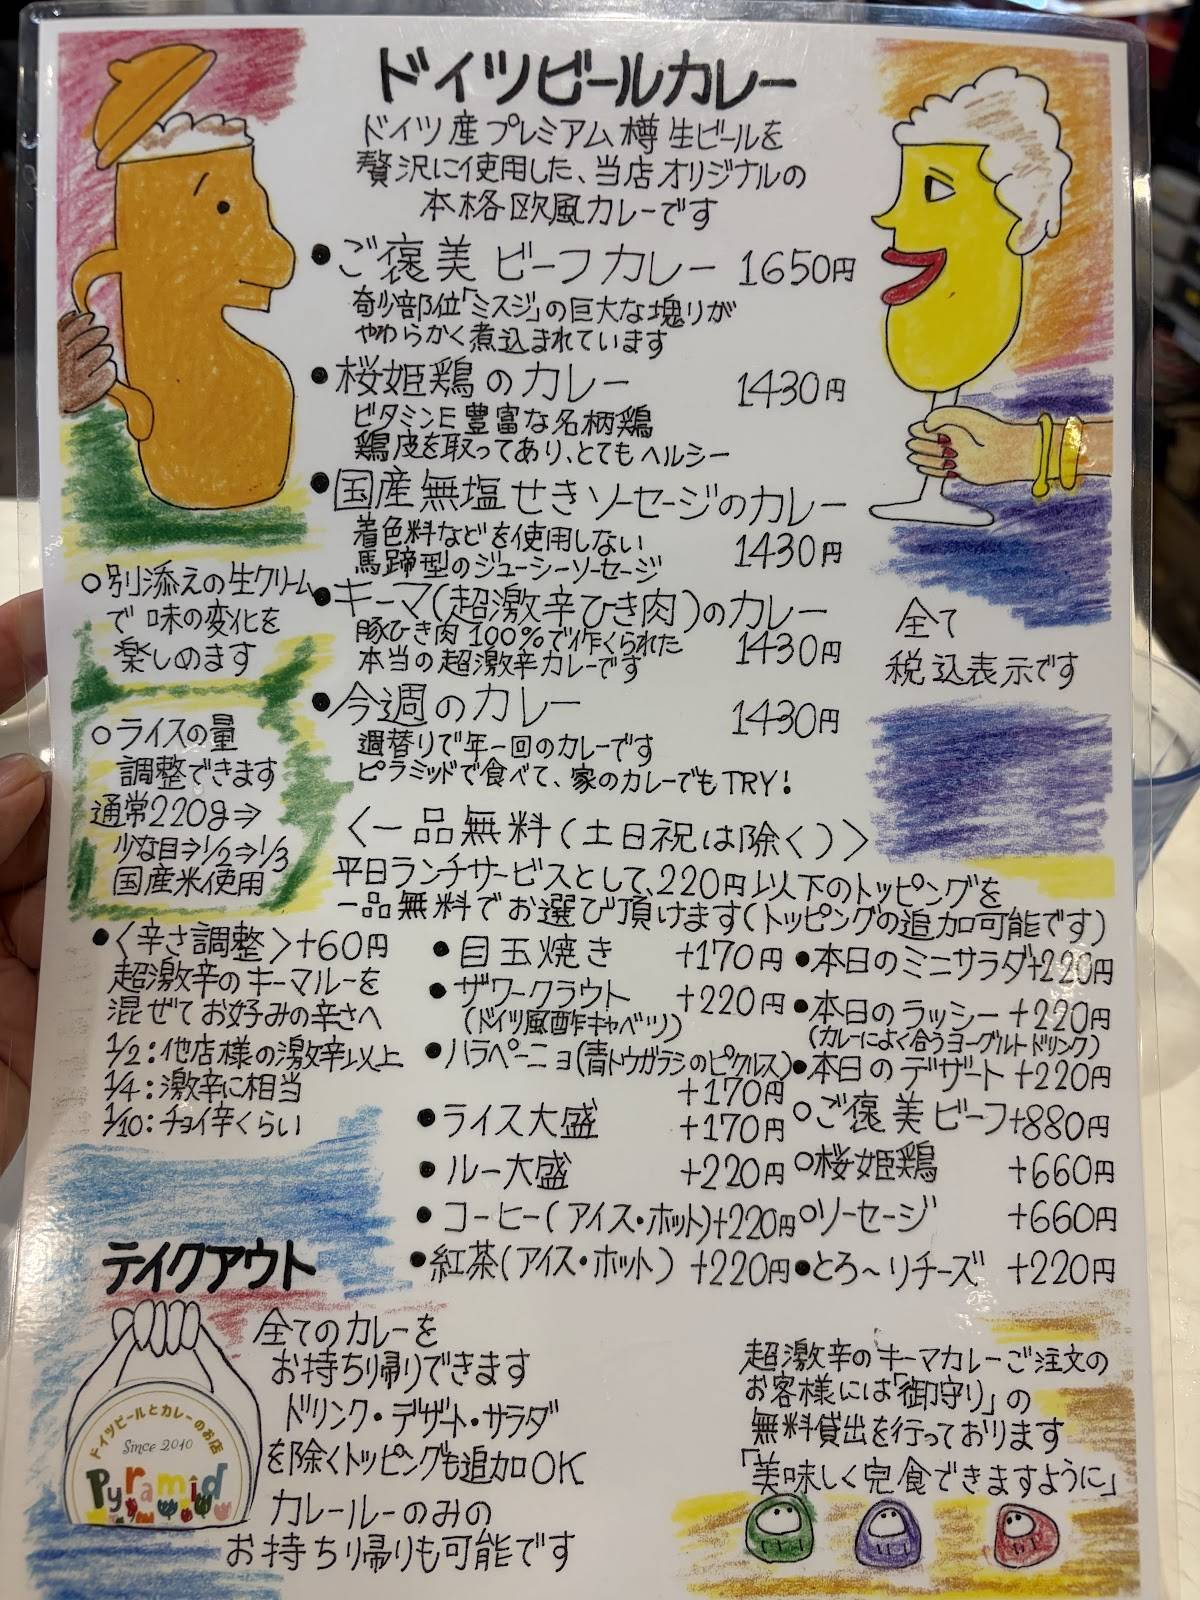 ドイツビールカレー
ドイツ産プレミアム樽生ビールを
贅沢に使用した、当店オリジナルの
本格欧風カレーです
●ご褒美ビーフカレー 1650円
奇少部位「ミスジ」の巨大な塊りが
やわらかく煮込まれています
●桜姫鶏のカレー 1430円
ビタミンE豊富な名柄鶏
鶏皮を取ってあり、とてもヘルシー
●国産無塩せきソーセージのカレー
着色料などを使用しない 1430円
馬蹄型のジューシーソーセージ
●キーマ(超激辛ひき肉)のカレー
豚ひき肉100%で作くられた 1430円
本当の超激辛カレーです
●今週のカレー 1430円
週替りで年一回のカレーです
ピラミッドで食べて、家のカレーでもTRY!
○別添えの生クリーム
で味の変化を
楽しめます
○ライスの量
調整できます
通常220g⇒
少な目⇒1/2⇒1/3
国産米使用
全て
税込表示です
〈一品無料(土日祝は除く)〉
平日ランチサービスとして、220円以下のトッピングを
一品無料でお選び頂けます(トッピングの追加可能です)
●〈辛さ調整〉+60円
超激辛のキーマルーを
混ぜてお好みの辛さへ
1/2:他店様の激辛以上
1/4:激辛に相当
1/10:チョイ辛くらい
●目玉焼き +170円
●ザワークラウト +220円
(ドイツ風酢作キャベツ)
●ハラペーニョ(青トウガラシのピクルス)
+170円
●ライス大盛 +170円
●ルー大盛 +220円
●コーヒー(アイス・ホット)+220円
●紅茶(アイス・ホット) +220円
●本日のミニサラダ+220円
●本日のラッシー +220円
(カレーによく合うヨーグルトドリンク)
●本日のデザート +220円
○ご褒美ビーフ+880円
○桜姫鶏 +660円
○ソーセージ +660円
●とろ～りチーズ +220円
テイクアウト
全てのカレーを
お持ち帰りできます
ドリンク・デザート・サラダ
を除くトッピングも追加OK
カレールーのみの
お持ち帰りも可能です
ドイツビールとカレーのお店
Since 2010
Pyramid
超激辛のキーマカレーご注文の
お客様には「御守り」の
無料貸出を行っております
「美味しく完食できますように」